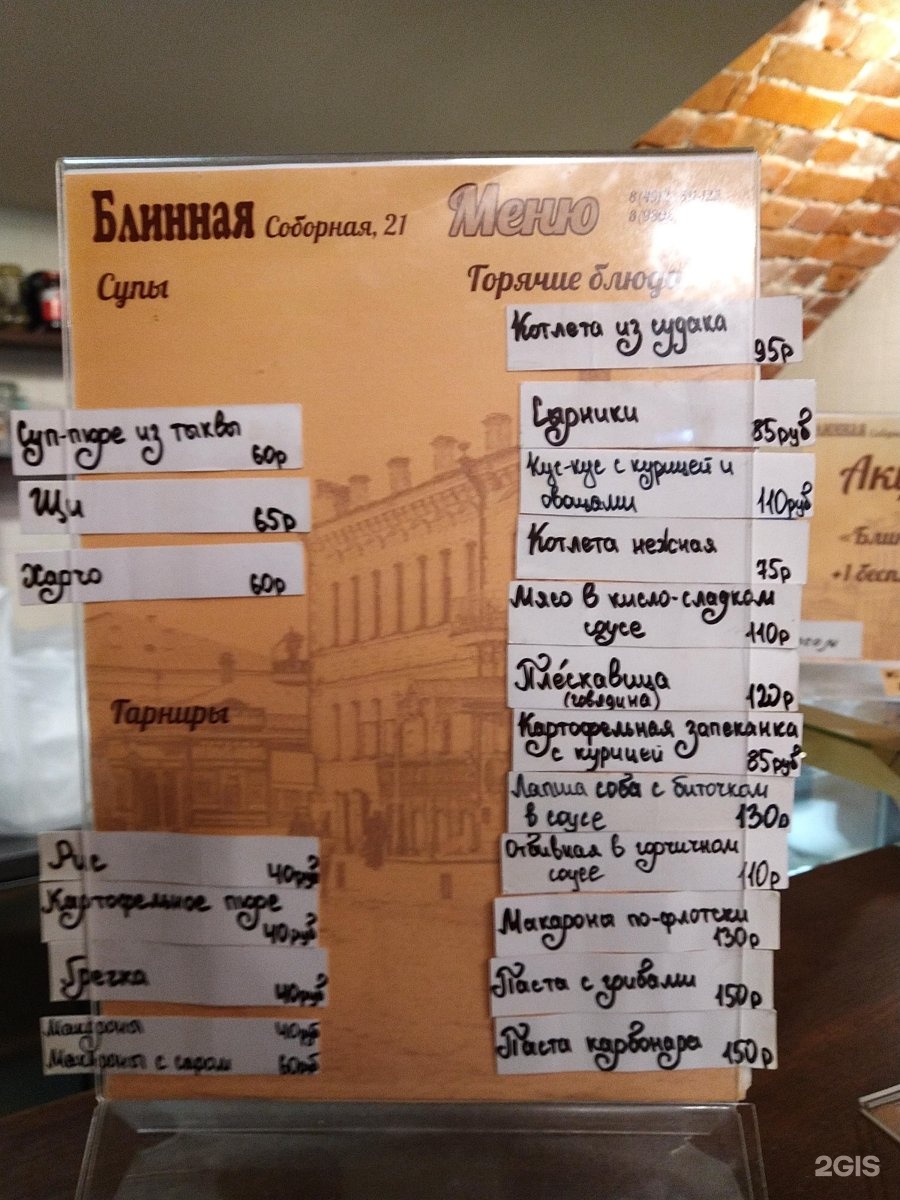 Блинная Соборная, 21
Меню
Супы
Суп-пюре из тыквы
60р
Щи
65р
Харчо
60р
Гарниры
Рис
40руб
Картофельное пюре
40руб
Гречка
40руб
Макароны
40руб
Макароны с сыром
60руб
Горячие блюда
Котлета из судака
95р
Сырники
85руб
Кус-кус с курицей и
овощами
110руб
Котлета нежная
75р
Мясо в кисло-сладком
соусе
110р
Плескавица
(говядина)
120р
Картофельная запеканка
с курицей
85руб
Лапша соба с биточком
в соусе
130р
Отбивная в горчичном
соусе
110р
Макароны по-флотски
130р
Паста с грибами
150р
Паста карбонара
150р
2GIS